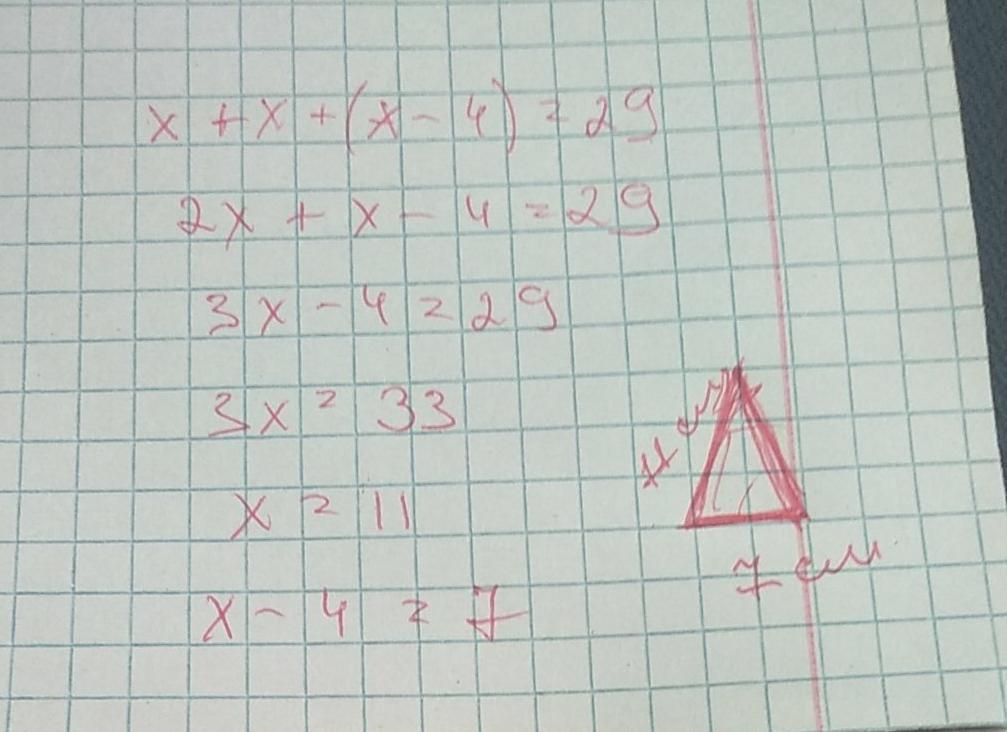 x + x + (x - 4) = 29
2x + x - 4 = 29
3x - 4 = 29
3x = 33
x = 11
x - 4 = 7
7 см